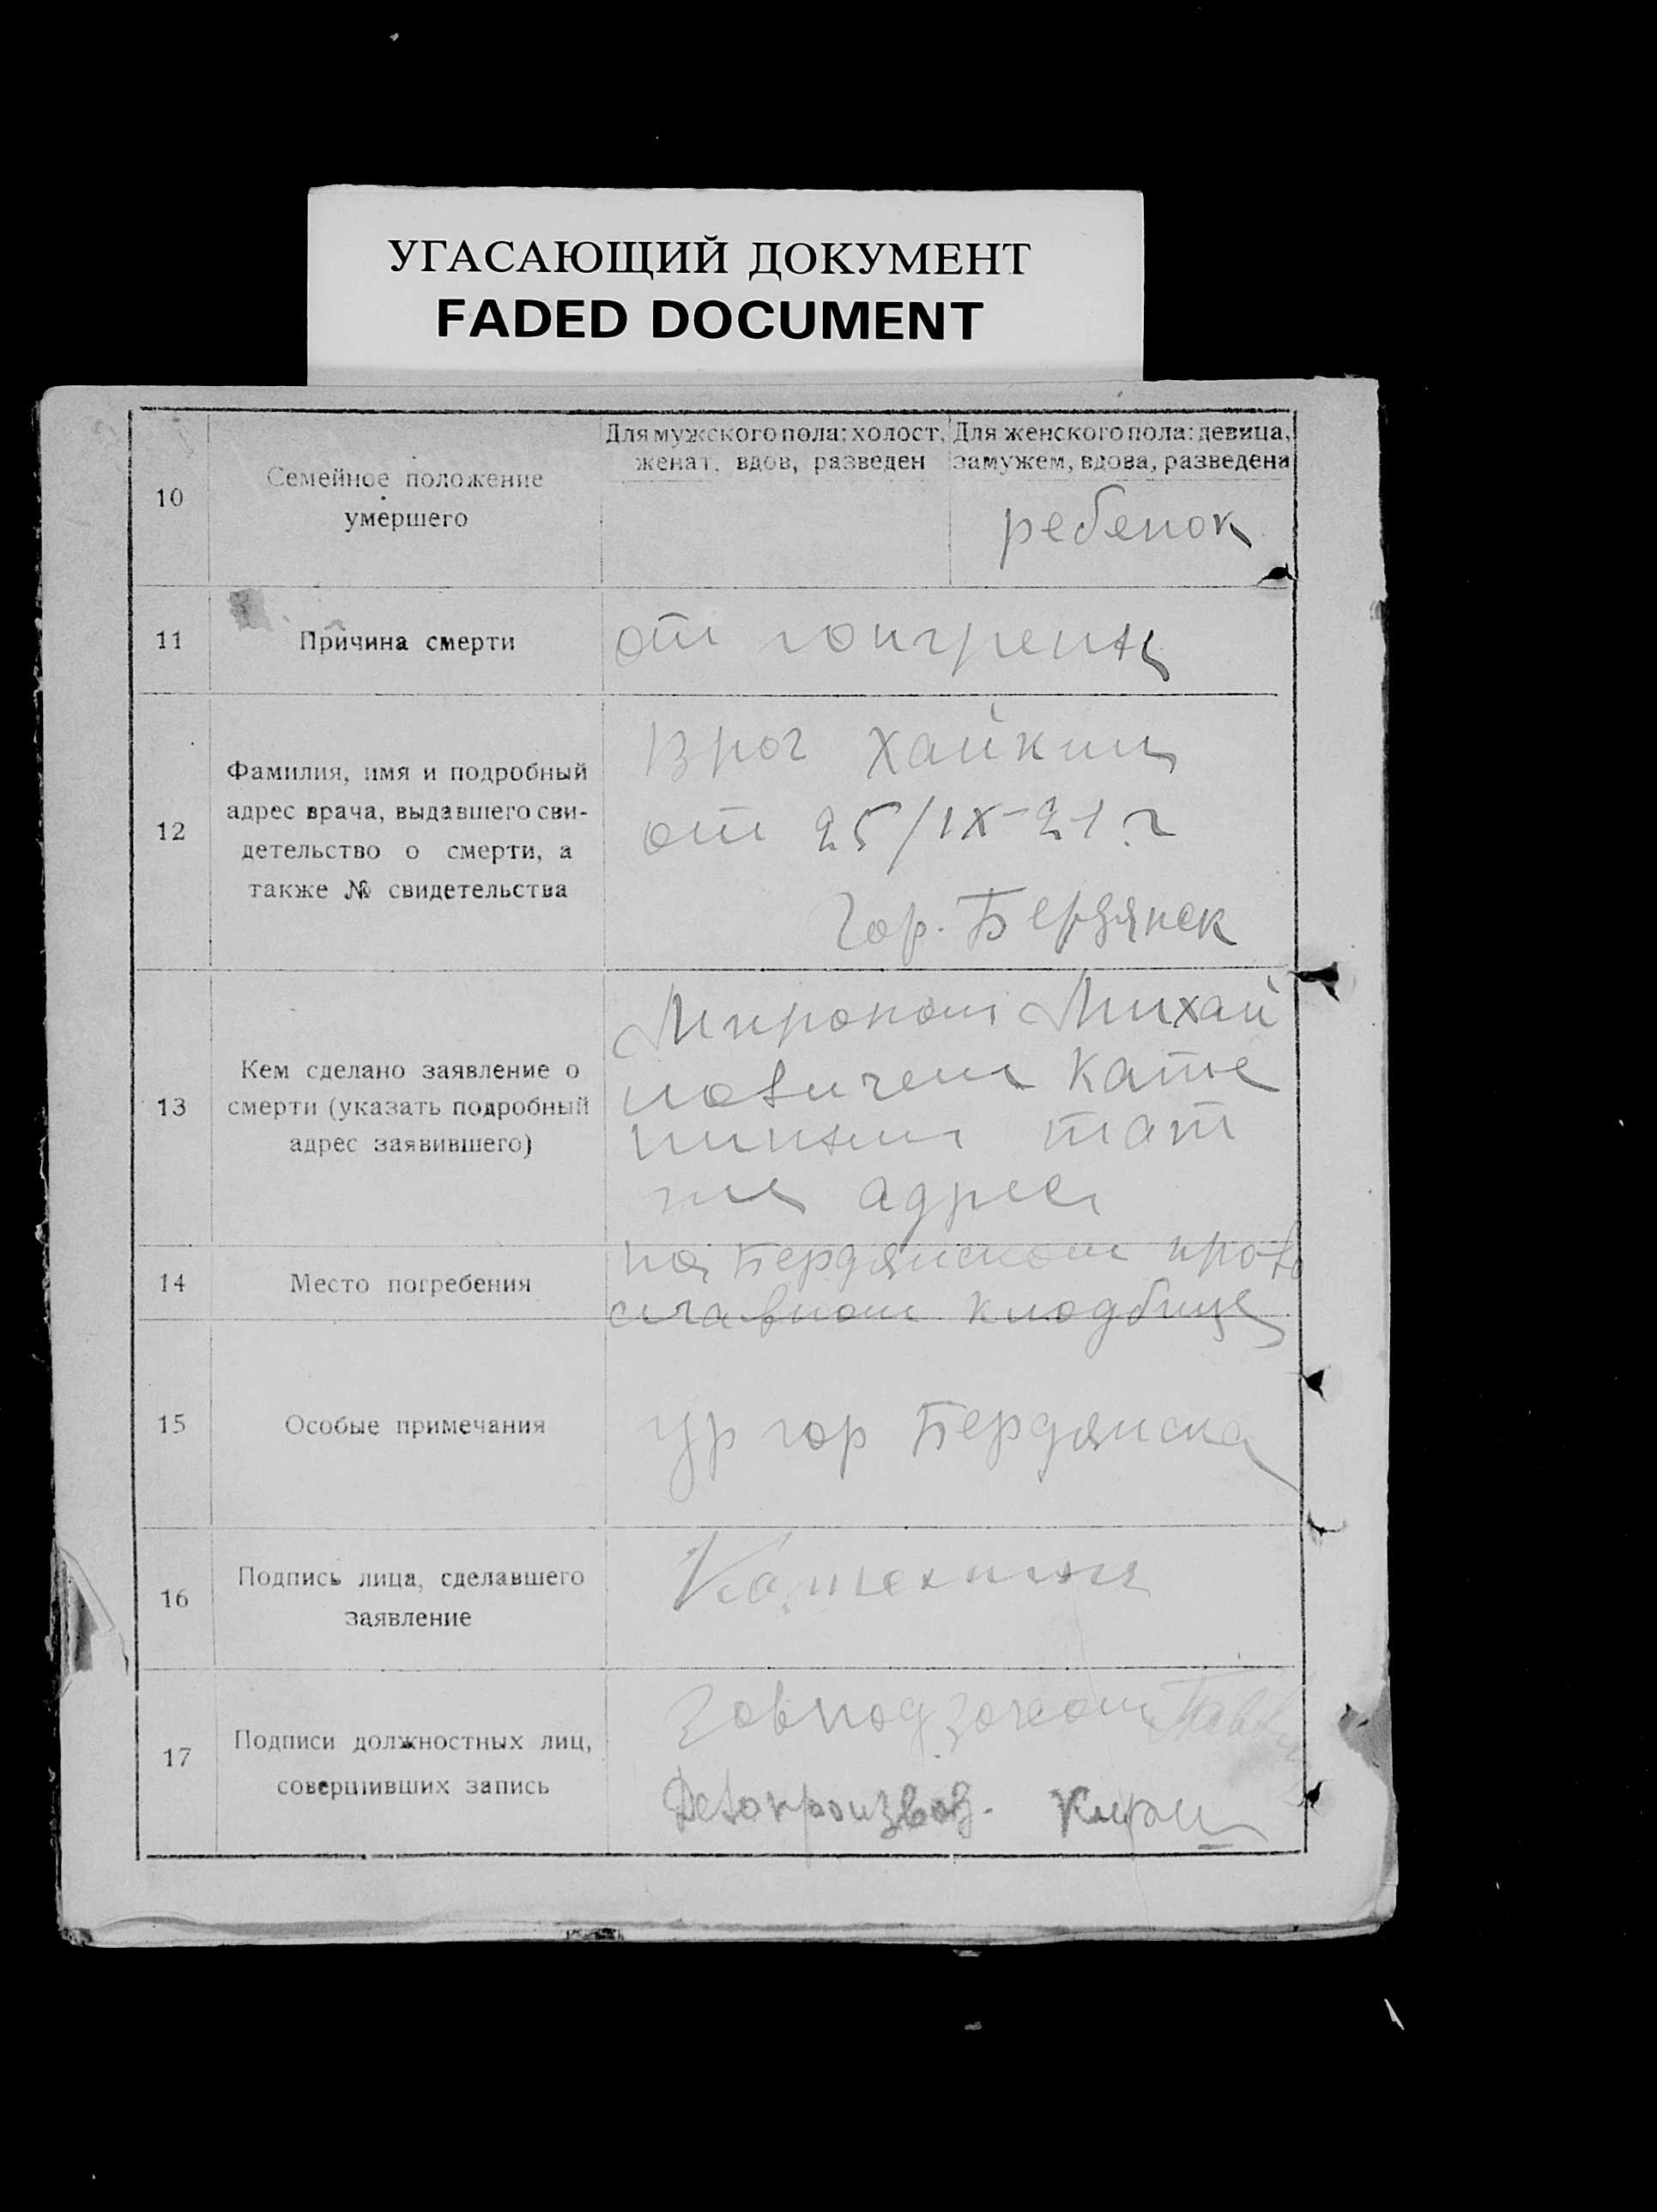 УГАСАЮЩИЙ ДОКУМЕНТ
FADED DOCUMENT
10
Семейное положение
умершего
Для мужского пола: холост,
женат, вдов, разведен
Для женского пола: девица,
замужем, вдова, разведена
ребенок
11
Причина смерти
от гонгрены
12
Фамилия, имя и подробный
адрес врача, выдавшего сви-
детельство о смерти, а
также № свидетельства
Врог Хайкин
от 25/IX-21 г
Гор. Бердянск
13
Кем сделано заявление о
смерти (указать подробный
адрес заявившего)
Мироном Михай
ловичем Кате
тот
же адрес
14
Место погребения
на Бердянском право
славном кладбище
15
Особые примечания
гор Бердянска
16
Подпись лица, сделавшего
заявление
17
Подписи должностных лиц,
совершивших запись
Завпод
Делопроизвод.